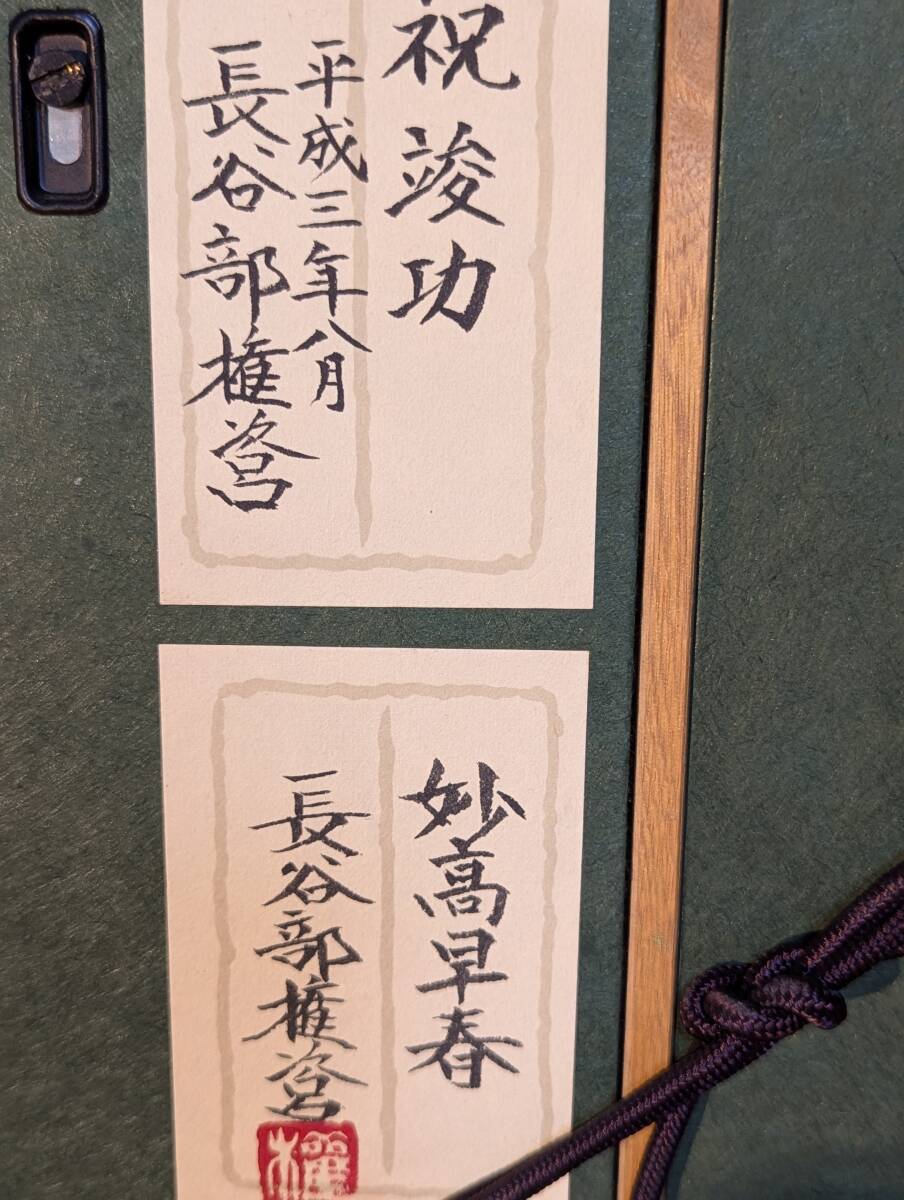 祝竣功
平成三年八月
長谷部権次呂
妙高早春
長谷部権次呂
權